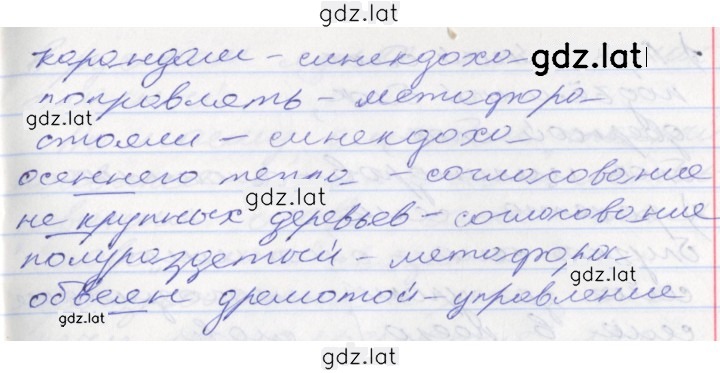 gdz.lat
карандаш – синекдоха
gdz.lat
поправлять – метафора
gdz.lat
gdz.lat
стояли – синекдоха
осеннего тепла – согласование
gdz.lat
не крупных деревьев – согласование
полураздетый – метафора
gdz.lat
обвеян дремотой – управление
gdz.lat
gdz.lat